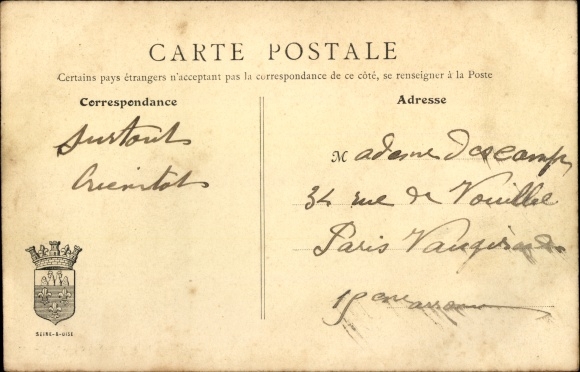 CARTE POSTALE
Certains pays étrangers n'acceptant pas la correspondance de ce côté, se renseigner à la Poste
Correspondance
surtout
Adresse
Madame Descamps
34 rue de Vouillé
Paris Vaugirard
15eme arron
SEINE-&-OISE